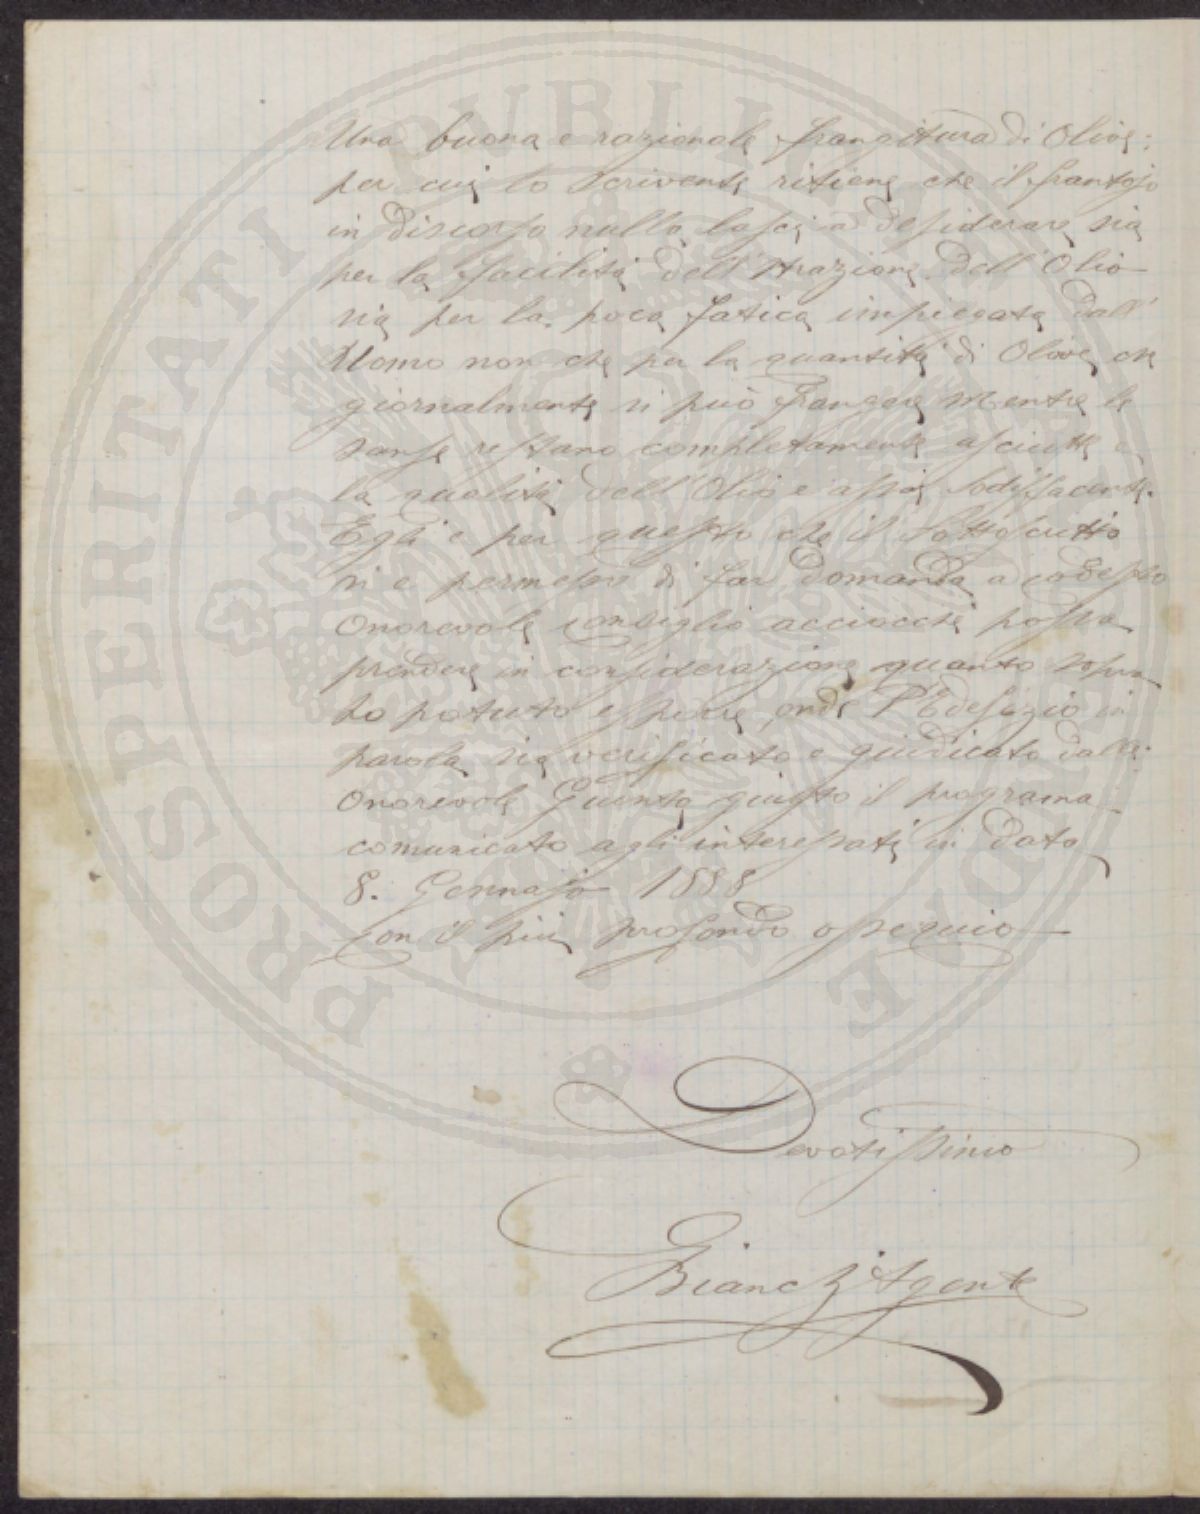 Una buona e razionale frangitura di Olive:
per cui lo scrivente ritiene che il frantojo
in discorso nulla lasci a desiderare sia
per la facilità dell'Atrazione dell'Olio
sia per la poca fatica impiegata dall'
Uomo non che per la quantità di Olive che
giornalmente si può frangere mentre le
sanse restano completamente asciutte e
la qualità dell'Olio e assai sodisfacente.
Egli e per questo che il Sottoscritto
si e permesso di far domanda a codesto
Onorevole consiglio acciocchè possa
prendere in considerazione quanto sopra
ho potuto esporre onde l'Edefizio in
parola sia verificato e giudicato dalla
Onorevole Giunta giusto il programa
comunicato agli interessati in data
8. Gennajo 1888
con il più profondo ossequio
Devotissimo
Bianchi Agente
PROSPERITATI PUBLICAE